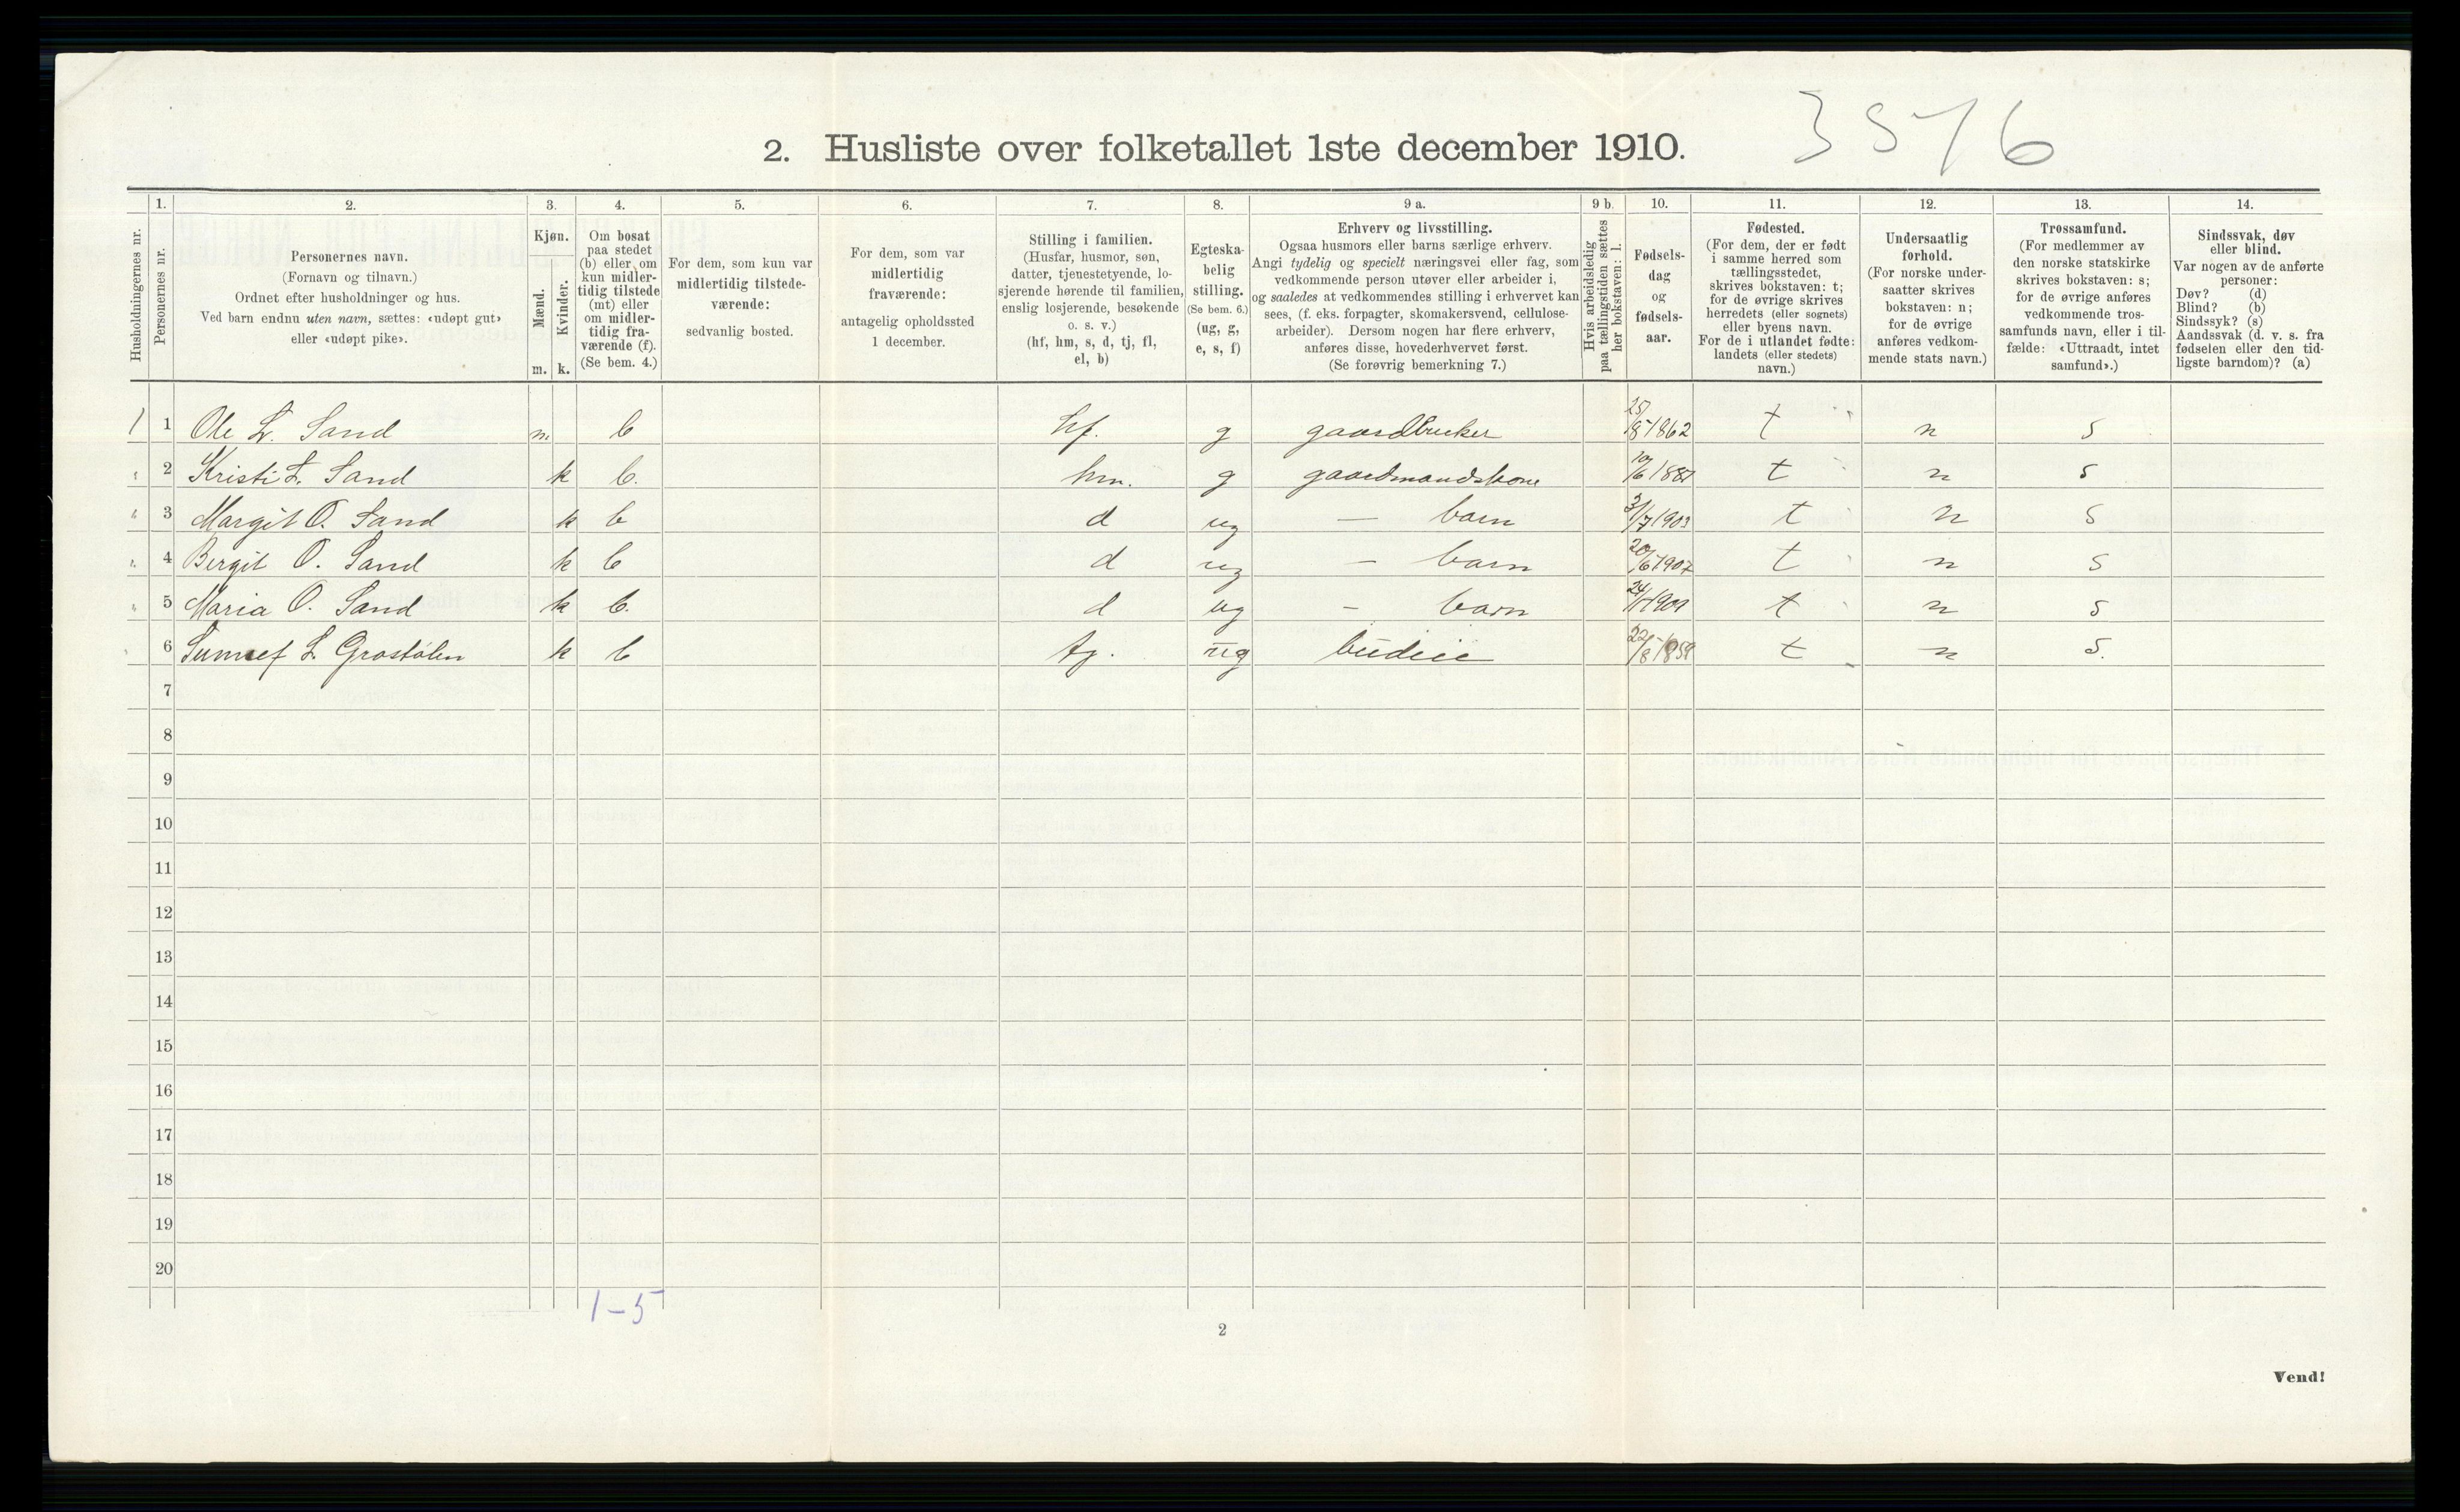 3576
2. Husliste over folketallet 1ste december 1910.
1. 2. 3. 4. 5. 6. 7. 8. 9 a. 9 b. 10. 11. 12. 13. 14.
Husholdningernes nr.
Personernes nr.
Personernes navn.
(Fornavn og tilnavn.)
Ordnet efter husholdninger og hus.
Ved barn endnu uten navn, sættes: «udøpt gut»
eller «udøpt pike».
Kjøn.
Mænd.
Kvinder.
m. k.
Om bosat
paa stedet
(b) eller om
kun midler-
tidig tilstede
(mt) eller
om midler-
tidig fra-
værende (f).
(Se bem. 4.)
For dem, som kun var
midlertidig tilstede-
værende:
sedvanlig bosted.
For dem, som var
midlertidig
fraværende:
antagelig opholdssted
1 december.
Stilling i familien.
(Husfar, husmor, søn,
datter, tjenestetyende, lo-
sjerende hørende til familien,
enslig losjerende, besøkende
o. s. v.)
(hf, hm, s, d, tj, fl,
el, b)
Egteska-
belig
stilling.
(Se bem. 6.)
(ug, g,
e, s, f)
Erhverv og livsstilling.
Ogsaa husmors eller barns særlige erhverv.
Angi tydelig og specielt næringsvei eller fag, som
vedkommende person utøver eller arbeider i,
og saaledes at vedkommendes stilling i erhvervet kan
sees, (f. eks. forpagter, skomakersvend, cellulose-
arbeider). Dersom nogen har flere erhverv,
anføres disse, hovederhvervet først.
(Se forøvrig bemerkning 7.)
Hvis arbeidsledig
paa tællingstiden sættes
her bokstaven: l.
Fødsels-
dag
og
fødsels-
aar.
Fødested.
(For dem, der er født
i samme herred som
tællingsstedet,
skrives bokstaven: t;
for de øvrige skrives
herredets (eller sognets)
eller byens navn.
For de i utlandet fødte:
landets (eller stedets)
navn.)
Undersaatlig
forhold.
(For norske under-
saatter skrives
bokstaven: n;
for de øvrige
anføres vedkom-
mende stats navn.)
Trossamfund.
(For medlemmer av
den norske statskirke
skrives bokstaven: s;
for de øvrige anføres
vedkommende tros-
samfunds navn, eller i til-
fælde: «Uttraadt, intet
samfund».)
Sindssvak, døv
eller blind.
Var nogen av de anførte
personer:
Døv? (d)
Blind? (b)
Sindssyk? (s)
Aandssvak (d. v. s. fra
fødselen eller den tid-
ligste barndom)? (a)
1 1 Ole L. Sand m. b hf. g gaardbruker 25/8-1862 t n s
2 Kristi L. Sand k b. hm. g gaardmandskone t n s
3 Margit O. Sand k b d ug — barn t n s
4 Bergit O. Sand k b d ug — barn 20/6 1907 t n s
5 Maria O. Sand k b. d ug - barn t n s
6 L. Grostølen k b tj. ug budeie t n s.
7
8
9
10
11
12
13
14
15
16
17
18
19
20
1-5
2
Vend!